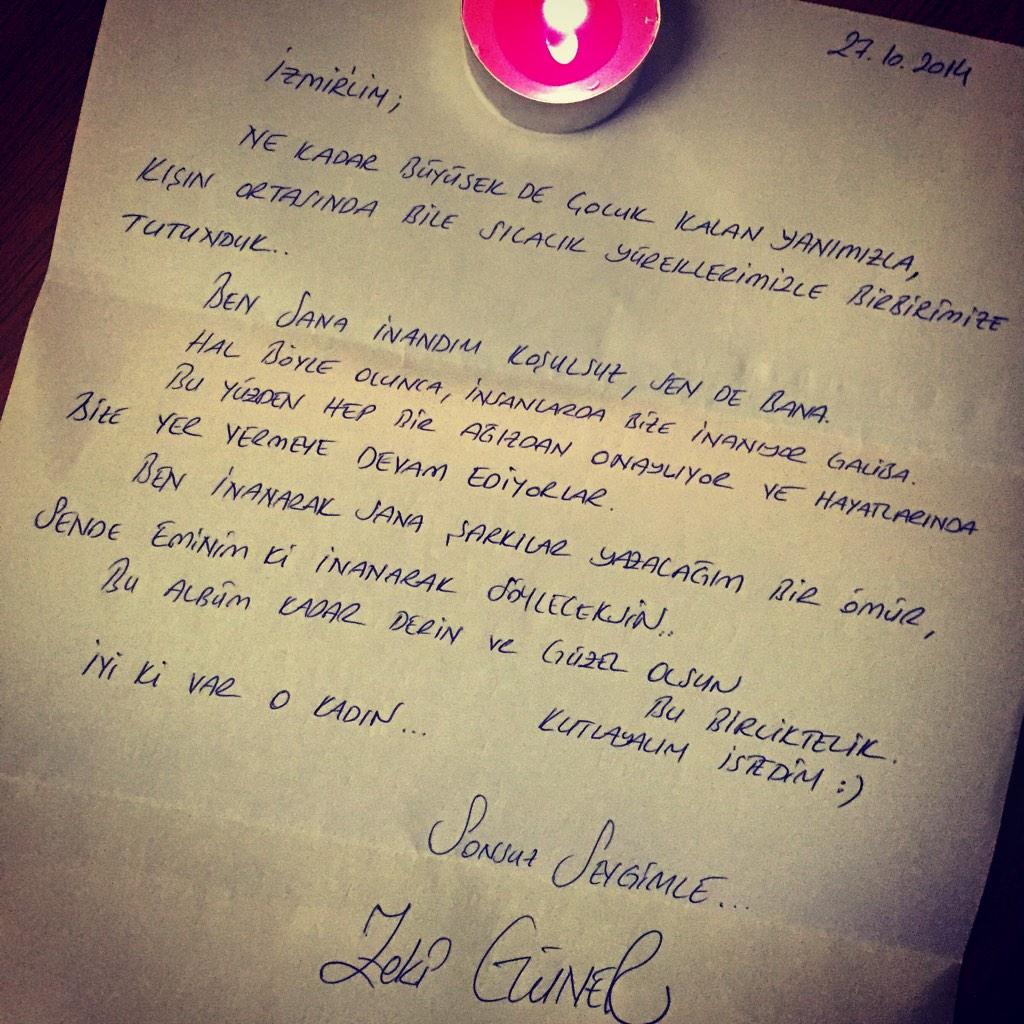 27.10.2014
İZMİR'LİM;
NE KADAR BÜYÜSEK DE ÇOCUK KALAN YANIMIZLA,
KIŞIN ORTASINDA BİLE SICACIK YÜREKLERİMİZLE BİRBİRİMİZE
TUTUNDUK..
BEN SANA İNANDIM KOŞULSUZ, SEN DE BANA.
HAL BÖYLE OLUNCA, İNSANLARDA BİZE İNANIYOR GALİBA.
BU YÜZDEN HEP BİR AĞIZDAN ONAYLIYOR VE HAYATLARINDA
BİZE YER VERMEYE DEVAM EDİYORLAR.
BEN İNANARAK SANA ŞARKILAR YAZACAĞIM BİR ÖMÜR,
SENDE EMİNİM Kİ İNANARAK SÖYLECEKSİN..
BU ALBÜM KADAR DERİN VE GÜZEL OLSUN
BU BİRLİKTELİK.
İYİ Kİ VAR O KADIN... KUTLAYALIM İSTEDİM :)
SONSUZ SEVGİMLE...
Zeki GÜNER